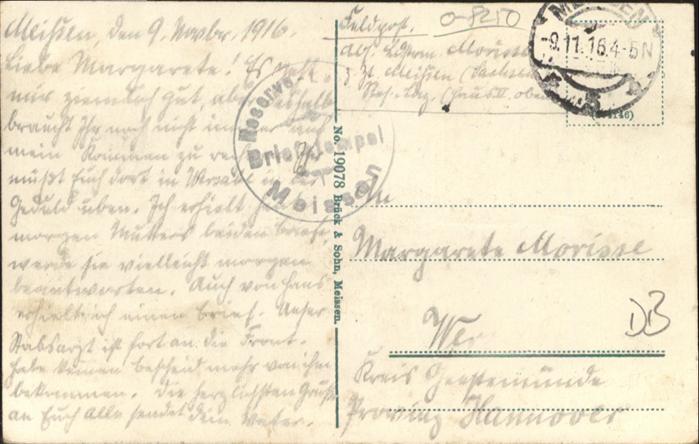 Meißen, den 9. Novbr. 1916.
Liebe Margarete! Es geht
mir ziemlich gut, aber deshalb
braucht Ihr noch nicht immer auf
mein Kommen zu
müßt Euch dort in in der
Geduld üben. Ich erhielt
morgen Mutters beiden Briefe,
werde sie vielleicht morgen
beantworten. Auch von Hans
erhielt ich einen Brief. Unser
Stabsarzt ist fort an die Front.
Habe keinen Bescheid mehr von ihm
bekommen. Die herzlichsten Grüße
an Euch Alle sendet dein Vater.
Feldpost.
0-8250
Abs. Morisse
z. Zt. Meißen (Sachsen
Res. Laz.
MEISSEN
-9.11.16.4-5N
Reserve
Briefstempel
Meissen
No. 19078 Brück & Sohn, Meissen.
An
Margarete Morisse
Wer
DB
Kreis Geestemünde
Provinz Hannover